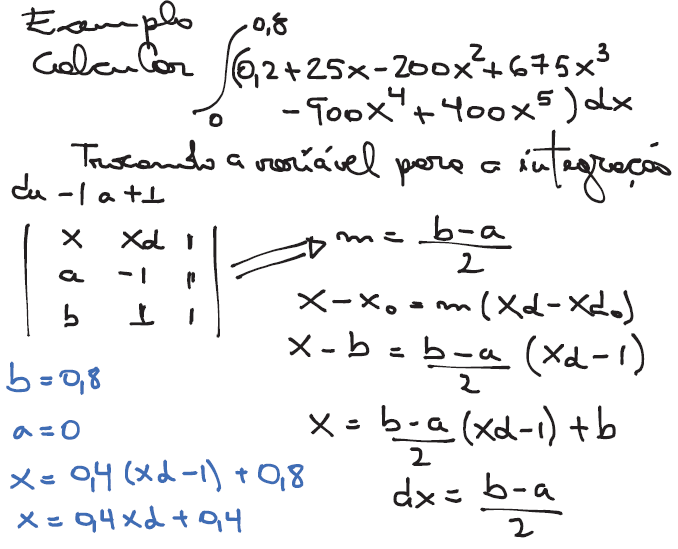 Exemplo
Calcular ∫ 0 0,8 (0,2+25x-200x²+675x³
-900x⁴+400x⁵)dx
Trocando a variável para a integração
de -1 a +1
| x xd 1 |
| a -1 1 |
| b 1 1 |
⇒ m = b-a / 2
x-x₀ = m(xd-xd₀)
x-b = b-a / 2 (xd-1)
x = b-a / 2 (xd-1) + b
dx = b-a / 2
b = 0,8
a = 0
x = 0,4(xd-1) + 0,8
x = 0,4xd + 0,4